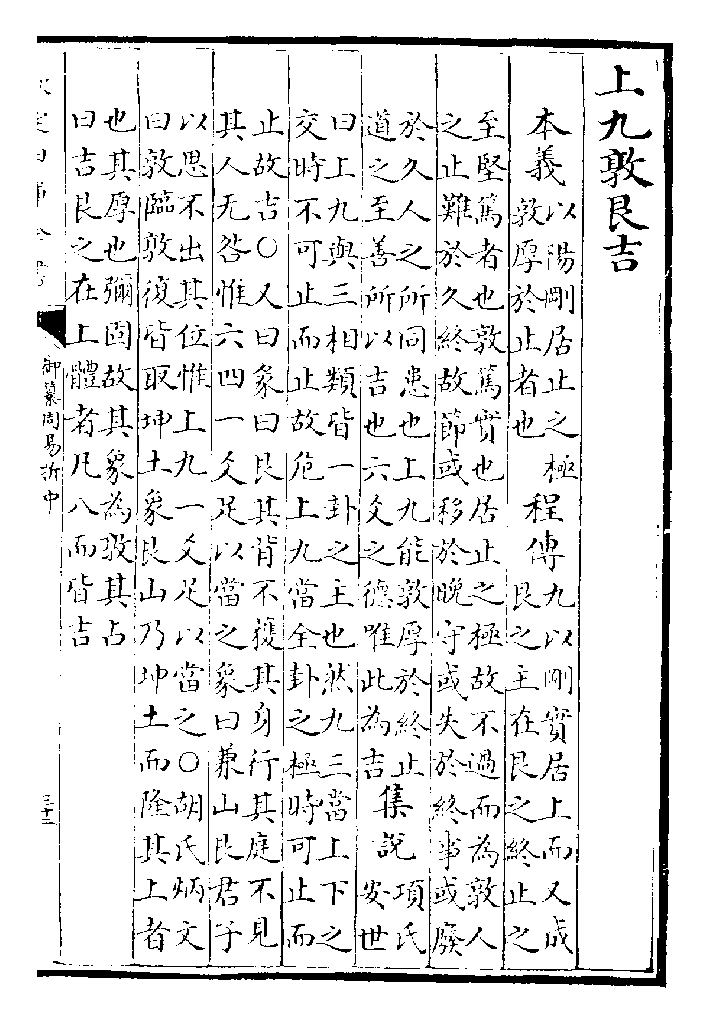 上九敦艮吉
本義以陽剛居止之極
敦厚於止者也
程傳九以剛實居上而又成
艮之主在艮之終止之
至堅篤者也敦篤實也居止之極故不過而為敦人
之止難於久終故節或移於晚守或失於終事或廢
於久人之所同患也上九能敦厚於終止
道之至善所以吉也六爻之德唯此為吉
集說項氏
安世
曰上九與三相類皆一卦之主也然九三當上下之
交時不可止而止故危上九當全卦之極時可止而
止故吉○又曰彖曰艮其背不獲其身行其庭不見
其人无咎惟六四一爻足以當之象曰兼山艮君子
以思不出其位惟上九一爻足以當之○胡氏炳文
曰敦臨敦復皆取坤土象艮山乃坤土而隆其上者
也其厚也彌固故其象為敦其占
曰吉艮之在上體者凡八而皆吉
御纂周易折中